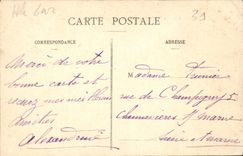 39
CARTE POSTALE
CORRESPONDANCE
ADRESSE
Merci de votre
bonne carte et
mes meilleures
amitiés
Alexandrine
Madame
rue de Champigny 5
Chennevières s/ Marne
Seine et Marne